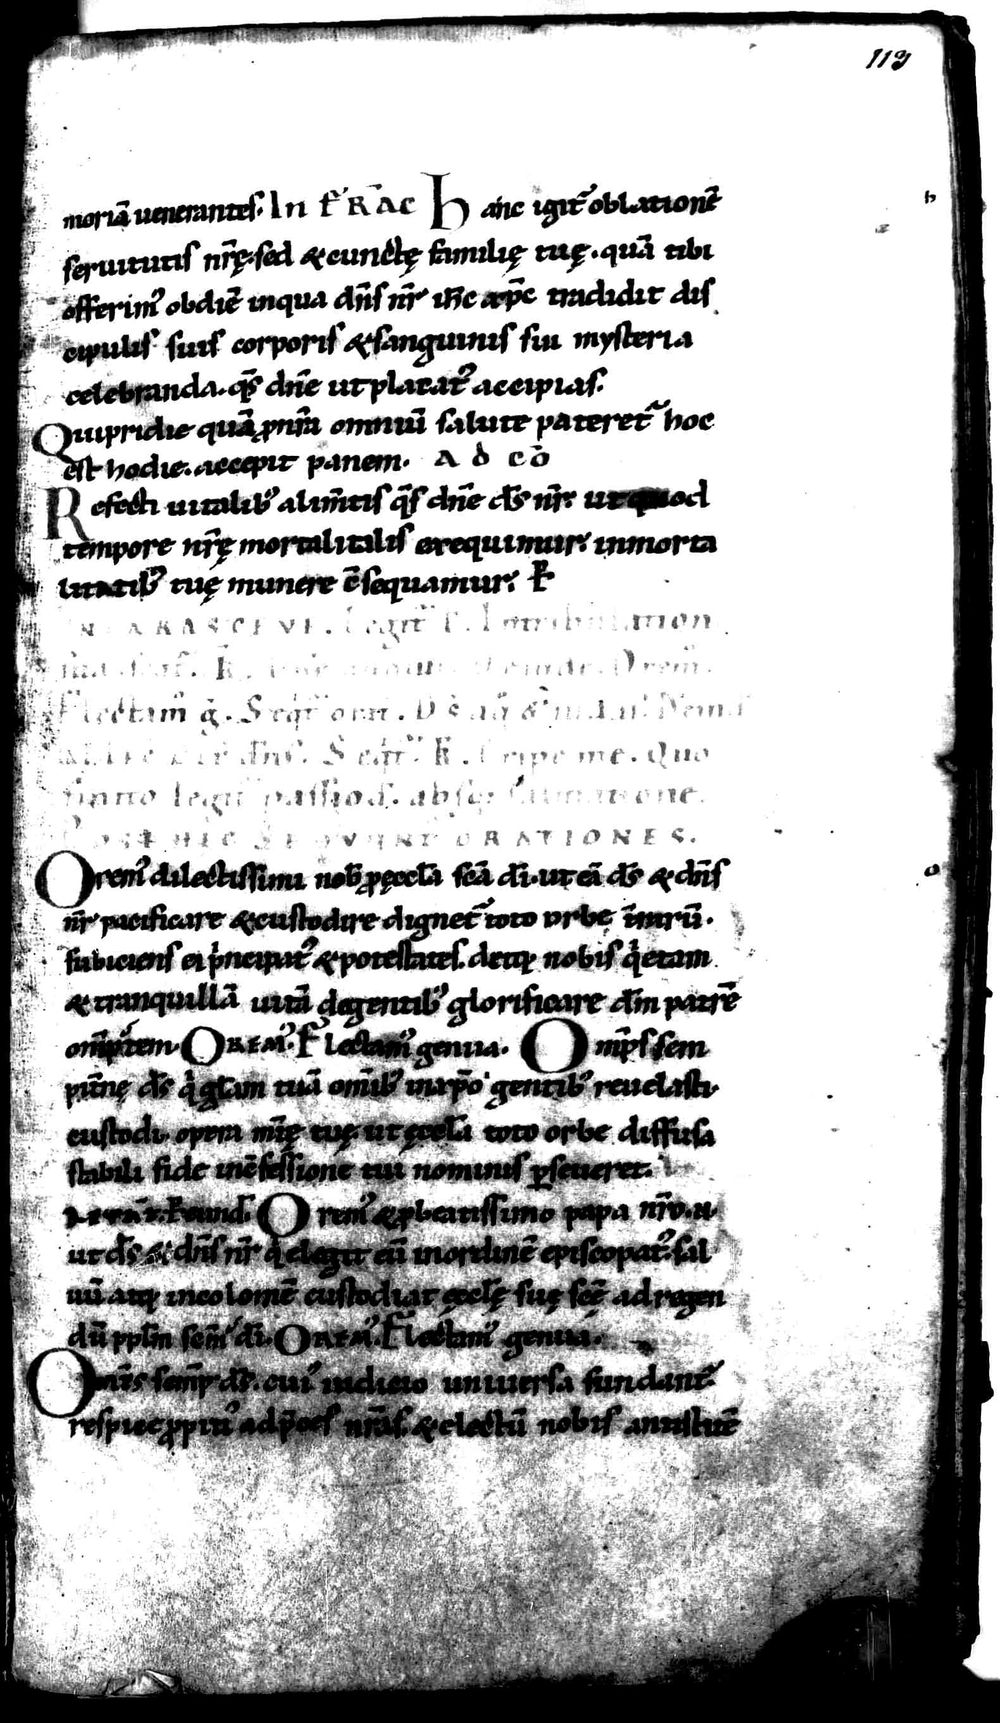 113
moriā uenerantes. In fRAC Hanc igit᷑ oblationē
seruitutis nr̄ę. sed & cunctę familię tuę. quā tibi
offerim᷒ ob diē in qua dn̄s nr̄ ih̄c xp̄c tradidit dis
cipulis suis corporis & sanguinis sui mysteria
celebranda. qs̄ dn̄e ut placat᷒ accipias.
Qui pridie quā ꝓ nr̄a omniū salute pateret᷑ hoc
est hodie. accepit panem. AD CŌ
Refecti uitalib᷒ alim̄tis qs̄ dn̄e ds̄ nr̄. ut quod
tempore nr̄ę mortalitatis exequimur. inmorta
litatib᷒ tuę munere c̄sequamur. P̄
PARASCEVE. legit᷑
Orem̄.
Flectam̄ g̅. Seqt᷑
Seqt᷑ R̄. Eripe me. Quo
finito legit᷑ passio absq;
POST HEC SEQVNT ORATIONES.
Orem᷒ dilectissimi nob̄ ꝓ ęccla̅ scā dī. ut eā ds̄ & dn̄s
nr̄ pacificare & custodire dignet᷑ toto orbe t̄rarū.
subiciens ei p̄ncipat᷒ & potestates. detq; nobis q̇etam
& tranquillā uitā degentib᷒ glorificare dm̄ patrē
omp̄tem. OREM᷒. Flectam᷒ genua. Omp̄s sem
pit̄nę ds̄ q̇ glam̄ tuā omib᷒ in xp̄o gentib᷒ reuelasti.
custodi opera mīę tuę. ut ęccla̅ toto orbe diffusa
stabili fide in c̄fessione tui nominis ꝑseueret.
Orem᷒ & ꝓ beatissimo papa nr̄o .n.
ut ds̄ & dn̄s nr̄ q̇ elegit eū in ordinē episcopat᷒. sal
uū atq; incolomē custodiat ęcclę̄ suę scę̄ ad regen
dū pplm̄ scm̄ dī. OREM᷒. Flectam᷒ genua.
Omp̄s semp̄ ds̄. cui᷒ iudicio uniuersa fundant᷑
respice ꝓpiti᷒ ad p̄ces nr̄as. & electū nobis antistitē